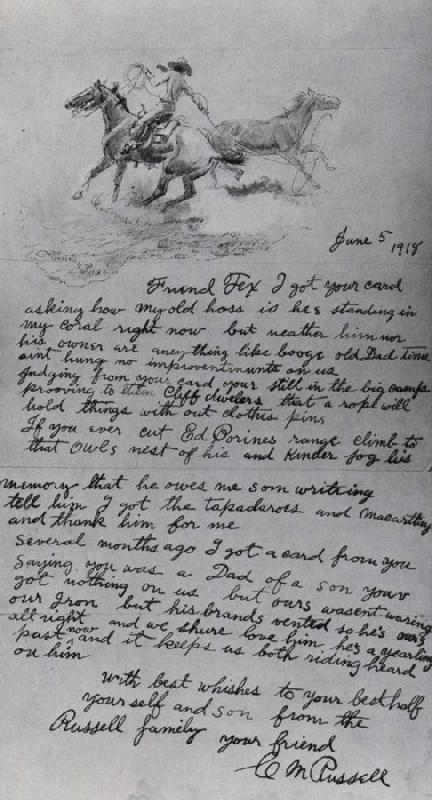 June 5 1918
Friend Tex I got your card
asking how my old hoss is hes standing in
my coral right now but neather him nor
his owner are aneything like booze old Dad time
aint hung no improvements on us
Judging from your card your still in the big camp
prooving to them Cliff dwelers that a rope will
hold things with out clothes pins
If you ever cut Ed Borines range climb to
that owls nest of his and kinder fog his
memory that he owes me som writeing
tell him I got the tapaderos and macarthy
and thank him for me
Several months ago I got a card from you
saying you was a Dad of a son youv
got nothing on us but ours wasent waring
our Iron but his brands vented so he's ours
all right and we shure love him he's a yearling
past now and it keeps us both riding heard
on him
With best whishes to your best half
your self and son from the
Russell family your friend
C M Russell